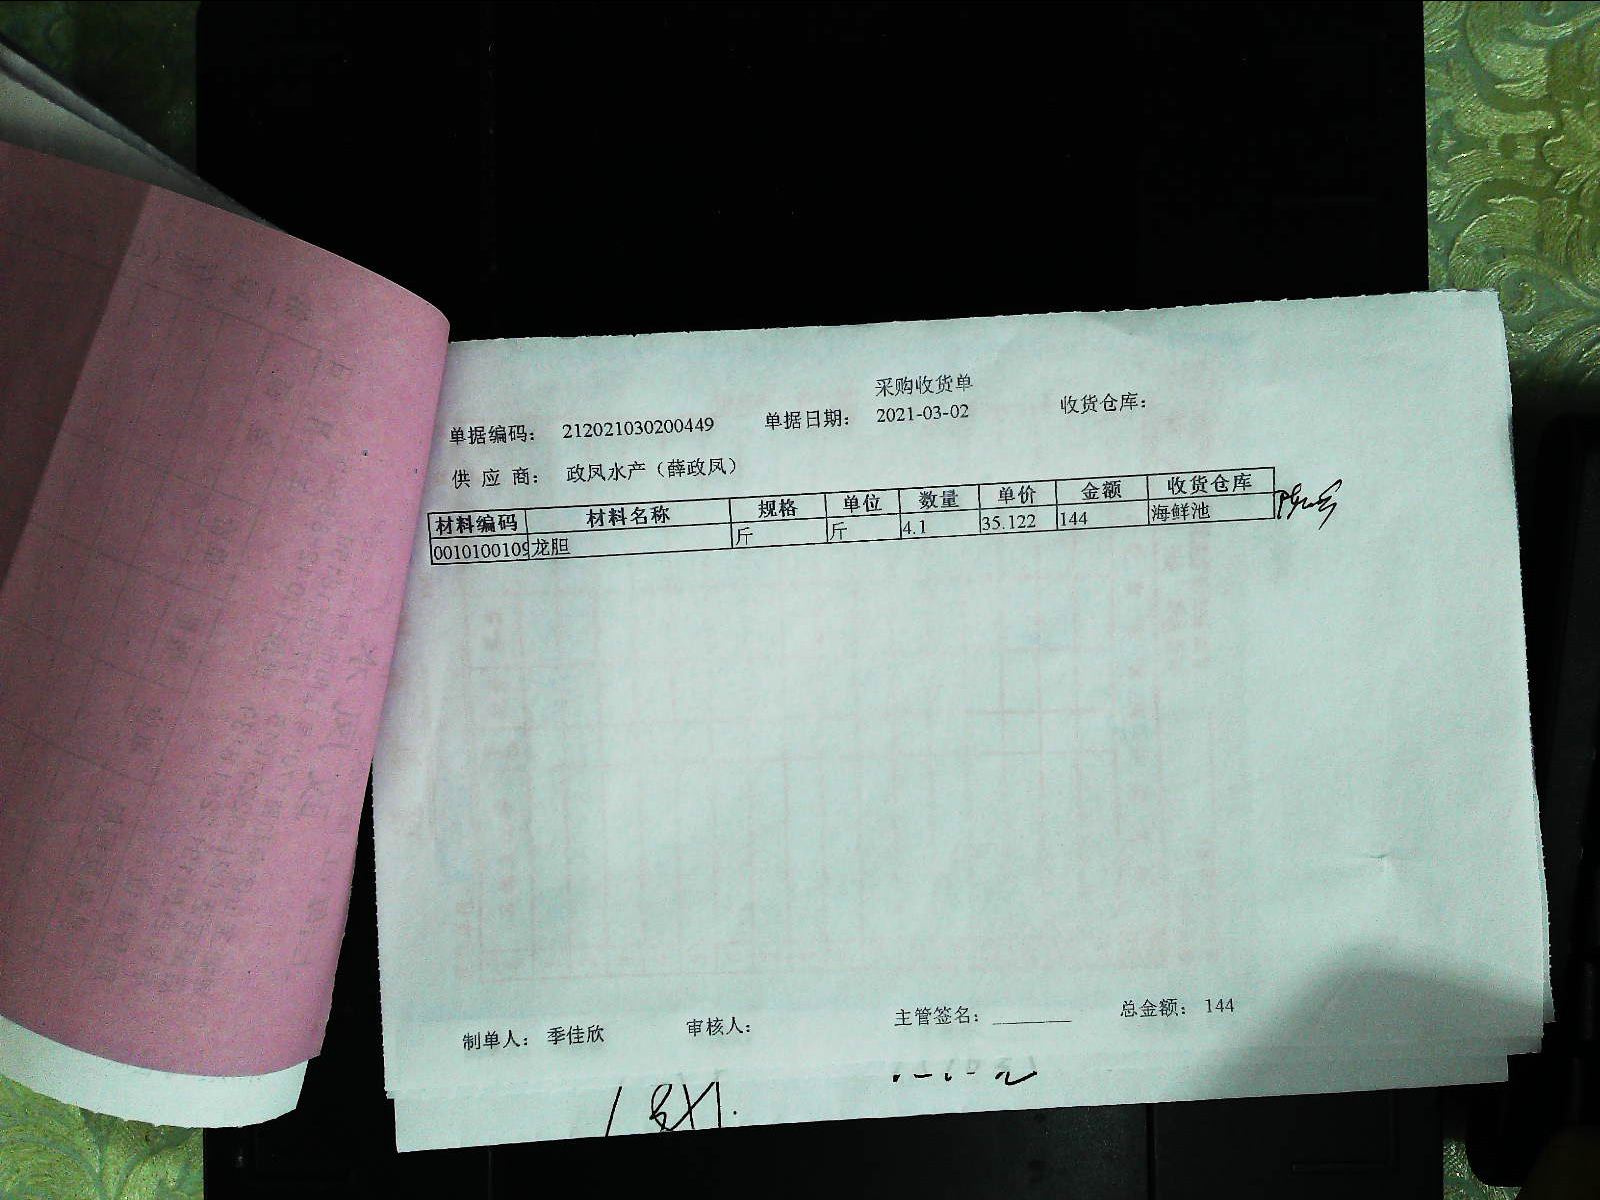 采购收货单
单据编码： 212021030200449 单据日期： 2021-03-02 收货仓库：
供 应 商： 政凤水产（薛政凤）
材料编码 材料名称 规格 单位 数量 单价 金额 收货仓库
0010100109 龙胆 斤 斤 4.1 35.122 144 海鲜池
制单人： 季佳欣 审核人： 主管签名：________ 总金额： 144